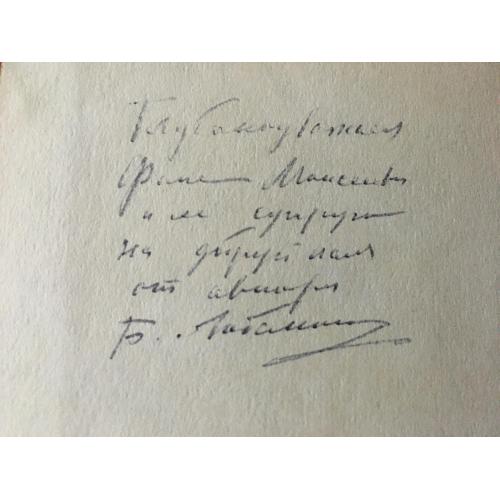 Глубокоуважаем
Фане Моисеевне
и её супругу
на добрую память
от автора
Б.